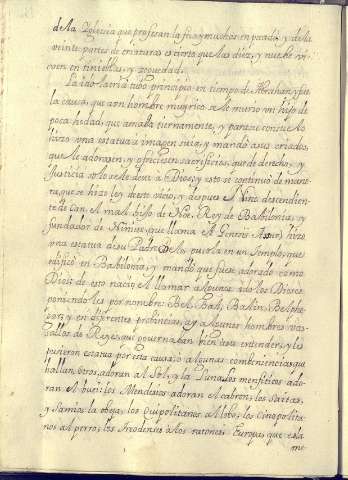 de la Iglesia que profesan la fe, y muchos en parado, y de la
veinte partes de criaturas es cierto que las diez, y nuebe vi-
ven en tinieblas, y zeguedad.
La idolatria tubo principio en tiempo de Abrahan, y fue
la causa, que a un hombre muy rico se le murio un hijo de
poca hedad, que amaba tiernamente, y para su consuelo
hizo una estatua a imagen suia, y mando a sus criados,
que le adorasen, y ofreciesen sacrificios, que de derecho, y
Justicia solo se le debe a Dios, y esto se continuó de mane-
ra, que se hizo ley deste vicio, y despues Nino descendien-
te de Can, el mal hijo de Noe, Rey de Babilonia, y
fundador de Ninive, que llama el Genesis Asur, hizo
una estatua de su Padre Belo, puesta en un Templo, que
edificó en Babilonia, y mandó que fuese adorado como
Dios: de esto nacio el llamar algunos Idolos Dioses
poniendoles por nombre Bel, Baal, Balin, Belphe-
gor, y en diferentes probincias, a algunos hombres va-
sallos de Reyes que gouernaban bien
pusieron estatua por esta causa, o algunas combeniencias que
hallan, otros adoran al Sol, y la Luna. Los menfiticos ado-
ran el buei: los Mendesios adoran el cabron, los Saitas,
y Samios la obeja, los Licopolitanos al lobo, los Cinopolita-
nos al perro, los a los ratones: Europa, que es la
me